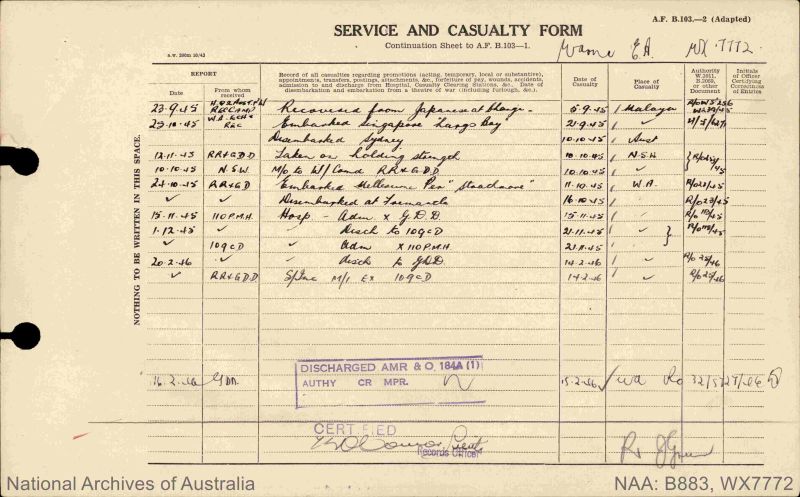 A.F. B.103.—2 (Adapted)
SERVICE AND CASUALTY FORM
Continuation Sheet to A.F. B.103—1.
E.A. WX 7772.
REPORT
Date
From whom received
Record of all casualties regarding promotions (acting, temporary, local or substantive), appointments, transfers, postings, attachments, &c., forfeiture of pay, wounds, accidents, admission to and discharge from Hospital, Casualty Clearing Stations, &c. Date of disembarkation and embarkation from a theatre of war (including furlough, &c.).
Date of Casualty
Place of Casualty
Authority W.3011, B.2069, or other Document
Initials of Officer Certifying Correctness of Entries
NOTHING TO BE WRITTEN IN THIS SPACE.
23-9-45 Recovered from Japanese at Changi 5-9-45 Malaya
23-10-45 Embarked Singapore Largs Bay 21-9-45 ✓
Disembarked Sydney 10-10-45 Aust
12-11-45 RR&GDD Taken on holding strength 10-10-45 N.S.W.
10-10-45 N.S.W. M/o to W/Comd RR&GDD 10-10-45
24-10-45 RR&GD Embarked Melbourne Per 11-10-45 W.A.
✓ ✓ Disembarked at Fremantle 16-10-45 R/o 23/45
15-11-45 110 P.M.H. Hosp - Adm. X G.D.D. 15-11-45
1-12-45 ✓ ✓ Disch to 109CD 21-11-45 ✓
✓ 109CD ✓ Adm X 110 P.M.H. 21-11-45
20-2-46 ✓ ✓ Disch to GDD. 14-2-46 ✓ R/o 25/46
✓ RR&GDD M/I Ex 109CD 14-2-46 ✓ R/o 25/46
DISCHARGED AMR & O. 184A (1)
AUTHY CR MPR.
16-2-46 GDD 15-2-46 WA
CERTIFIED
Records Officer
National Archives of Australia
NAA: B883, WX7772